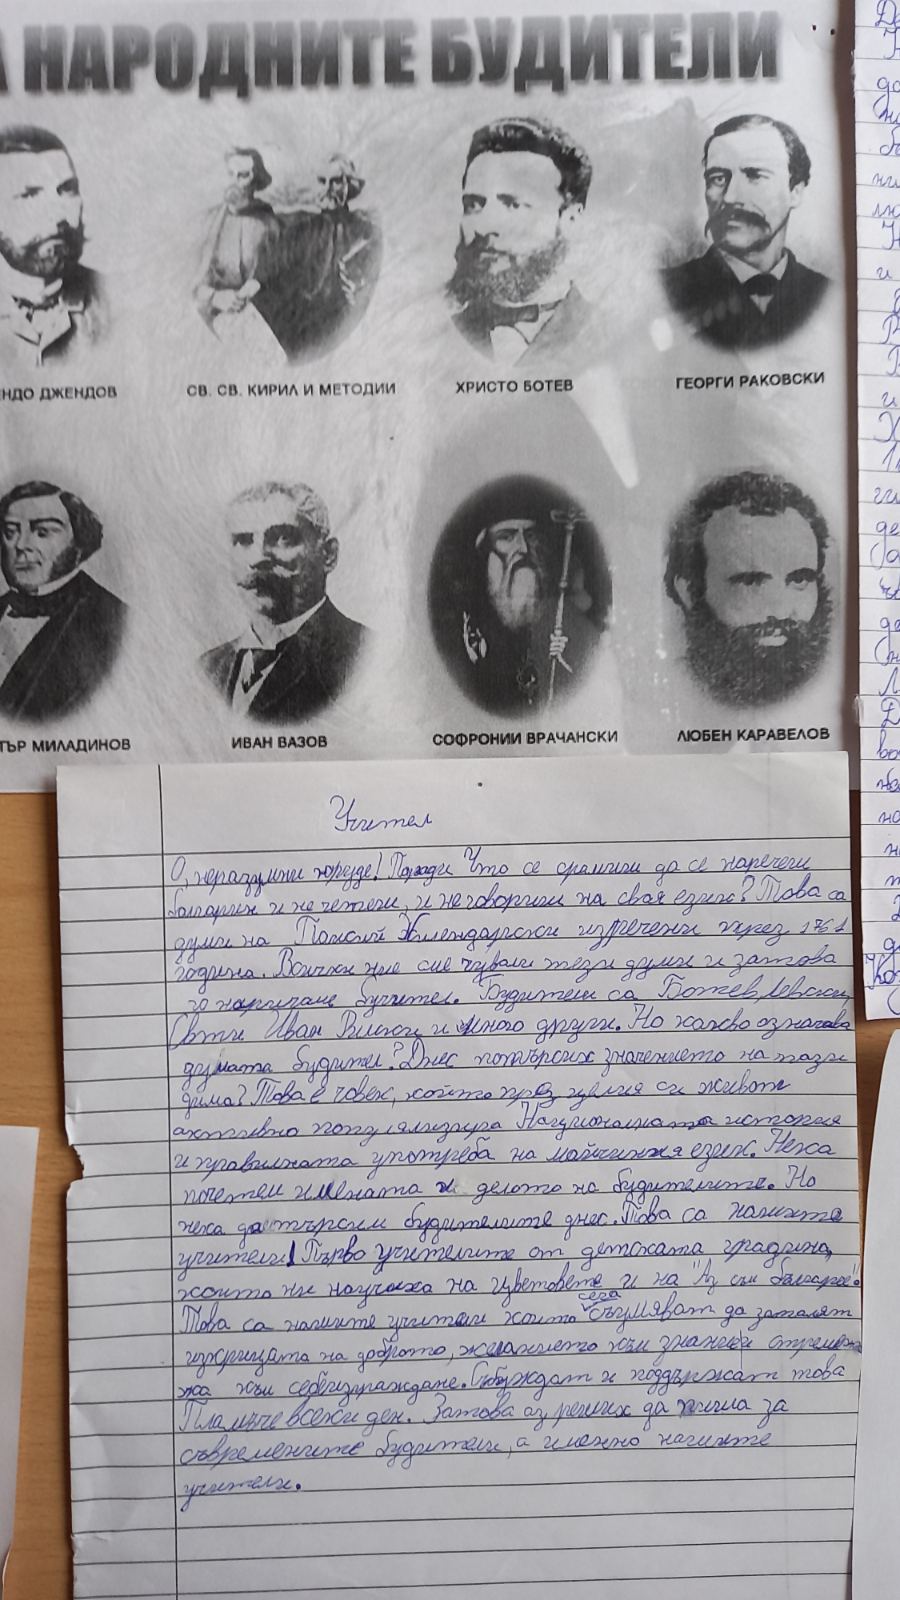 А НАРОДНИТЕ БУДИТЕЛИ
НДО ДЖЕНДОВ
СВ. СВ. КИРИЛ И МЕТОДИИ
ХРИСТО БОТЕВ
ГЕОРГИ РАКОВСКИ
ТЪР МИЛАДИНОВ
ИВАН ВАЗОВ
СОФРОНИИ ВРАЧАНСКИ
ЛЮБЕН КАРАВЕЛОВ
Учител
О, неразумни юрзде! Поради Что се срамиш да се наречеш
болгарин и не четеш, и не говориш на своя език? Това са
думи на Паисий Хилендарски изречени през 1762
година. Всички ние сме чували тези думи и затова
го наричаме будител. Будители са Ботев, Левски,
Свети Иван Рилски и много други. Но какво означава
думата будител? Днес потърсих значението на тази
дума? Това е човек, който през целия си живот
активно популяризира Националната история
и правилната употреба на майчиния език. Нека
почетем имената и делото на будителите. Но
нека да търсим будителите днес. Това са нашите
учители! Първо учителите от детската градина,
които ни научиха на цветовете и на "Аз съм българче".
Това са нашите учители които сега съумяват да запалят
искрицата на доброто, желанието към знания и стреме
жа към себеизграждане. Събуждат и поддържат това
Пламъче всеки ден. Затова аз реших да пиша за
съвременните будители, а именно нашите
учители.